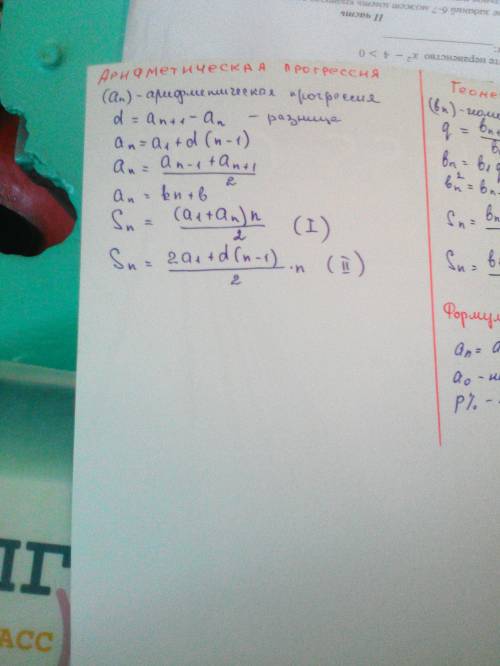 II часть
те неравенство x² − 4 > 0
АРИФМЕТИЧЕСКАЯ ПРОГРЕССИЯ
(aₙ) - арифметическая прогрессия
d = aₙ₊₁ - aₙ - разнице
aₙ = a₁ + d(n-1)
aₙ = (aₙ₋₁ + aₙ₊₁)/2
aₙ = kn + b
Sₙ = (a₁ + aₙ)n/2 (I)
Sₙ = (2a₁ + d(n-1))/2 · n (II)
Геоме
(bₙ) - геоме
q = bₙ₊
bₙ = b₁ q
bₙ² = bₙ₋
Sₙ = bₙ
Sₙ = b
Формул
aₙ = a
a₀ - н
p% -
АСС